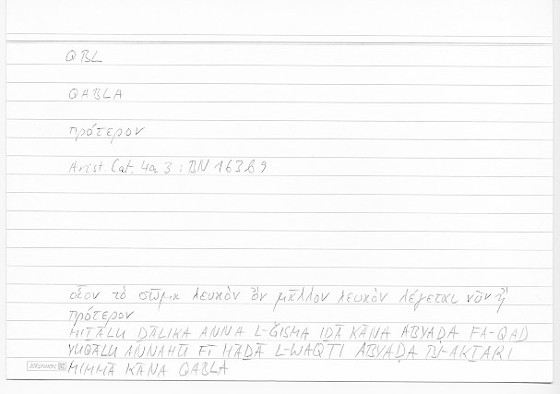 QBL
QABLA
πρότερον
Arist. Cat. 4a 3 : BN 163b9
οἷον τὸ σῶμα λευκὸν ὂν μᾶλλον λευκὸν λέγεται νῦν ἢ
πρότερον
MIṮĀLU ḎĀLIKA ANNA L-ǦISMA IḎĀ KĀNA ABYAḌA FA-QAD
YUQĀLU ANNAHŪ FĪ HĀḎĀ L-WAQTI ABYAḌA BI-AKṮARI
MIMMĀ KĀNA QABLA